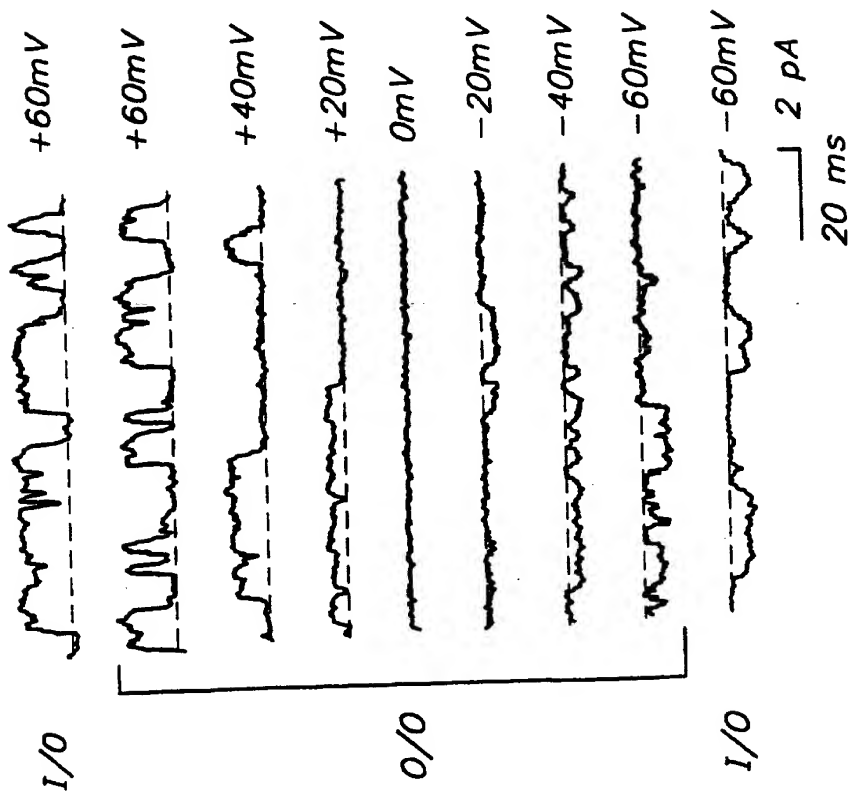 I/O
+60mV
O/O
+60mV
+40mV
+20mV
0mV
-20mV
-40mV
-60mV
I/O
-60mV
2 pA
20 ms